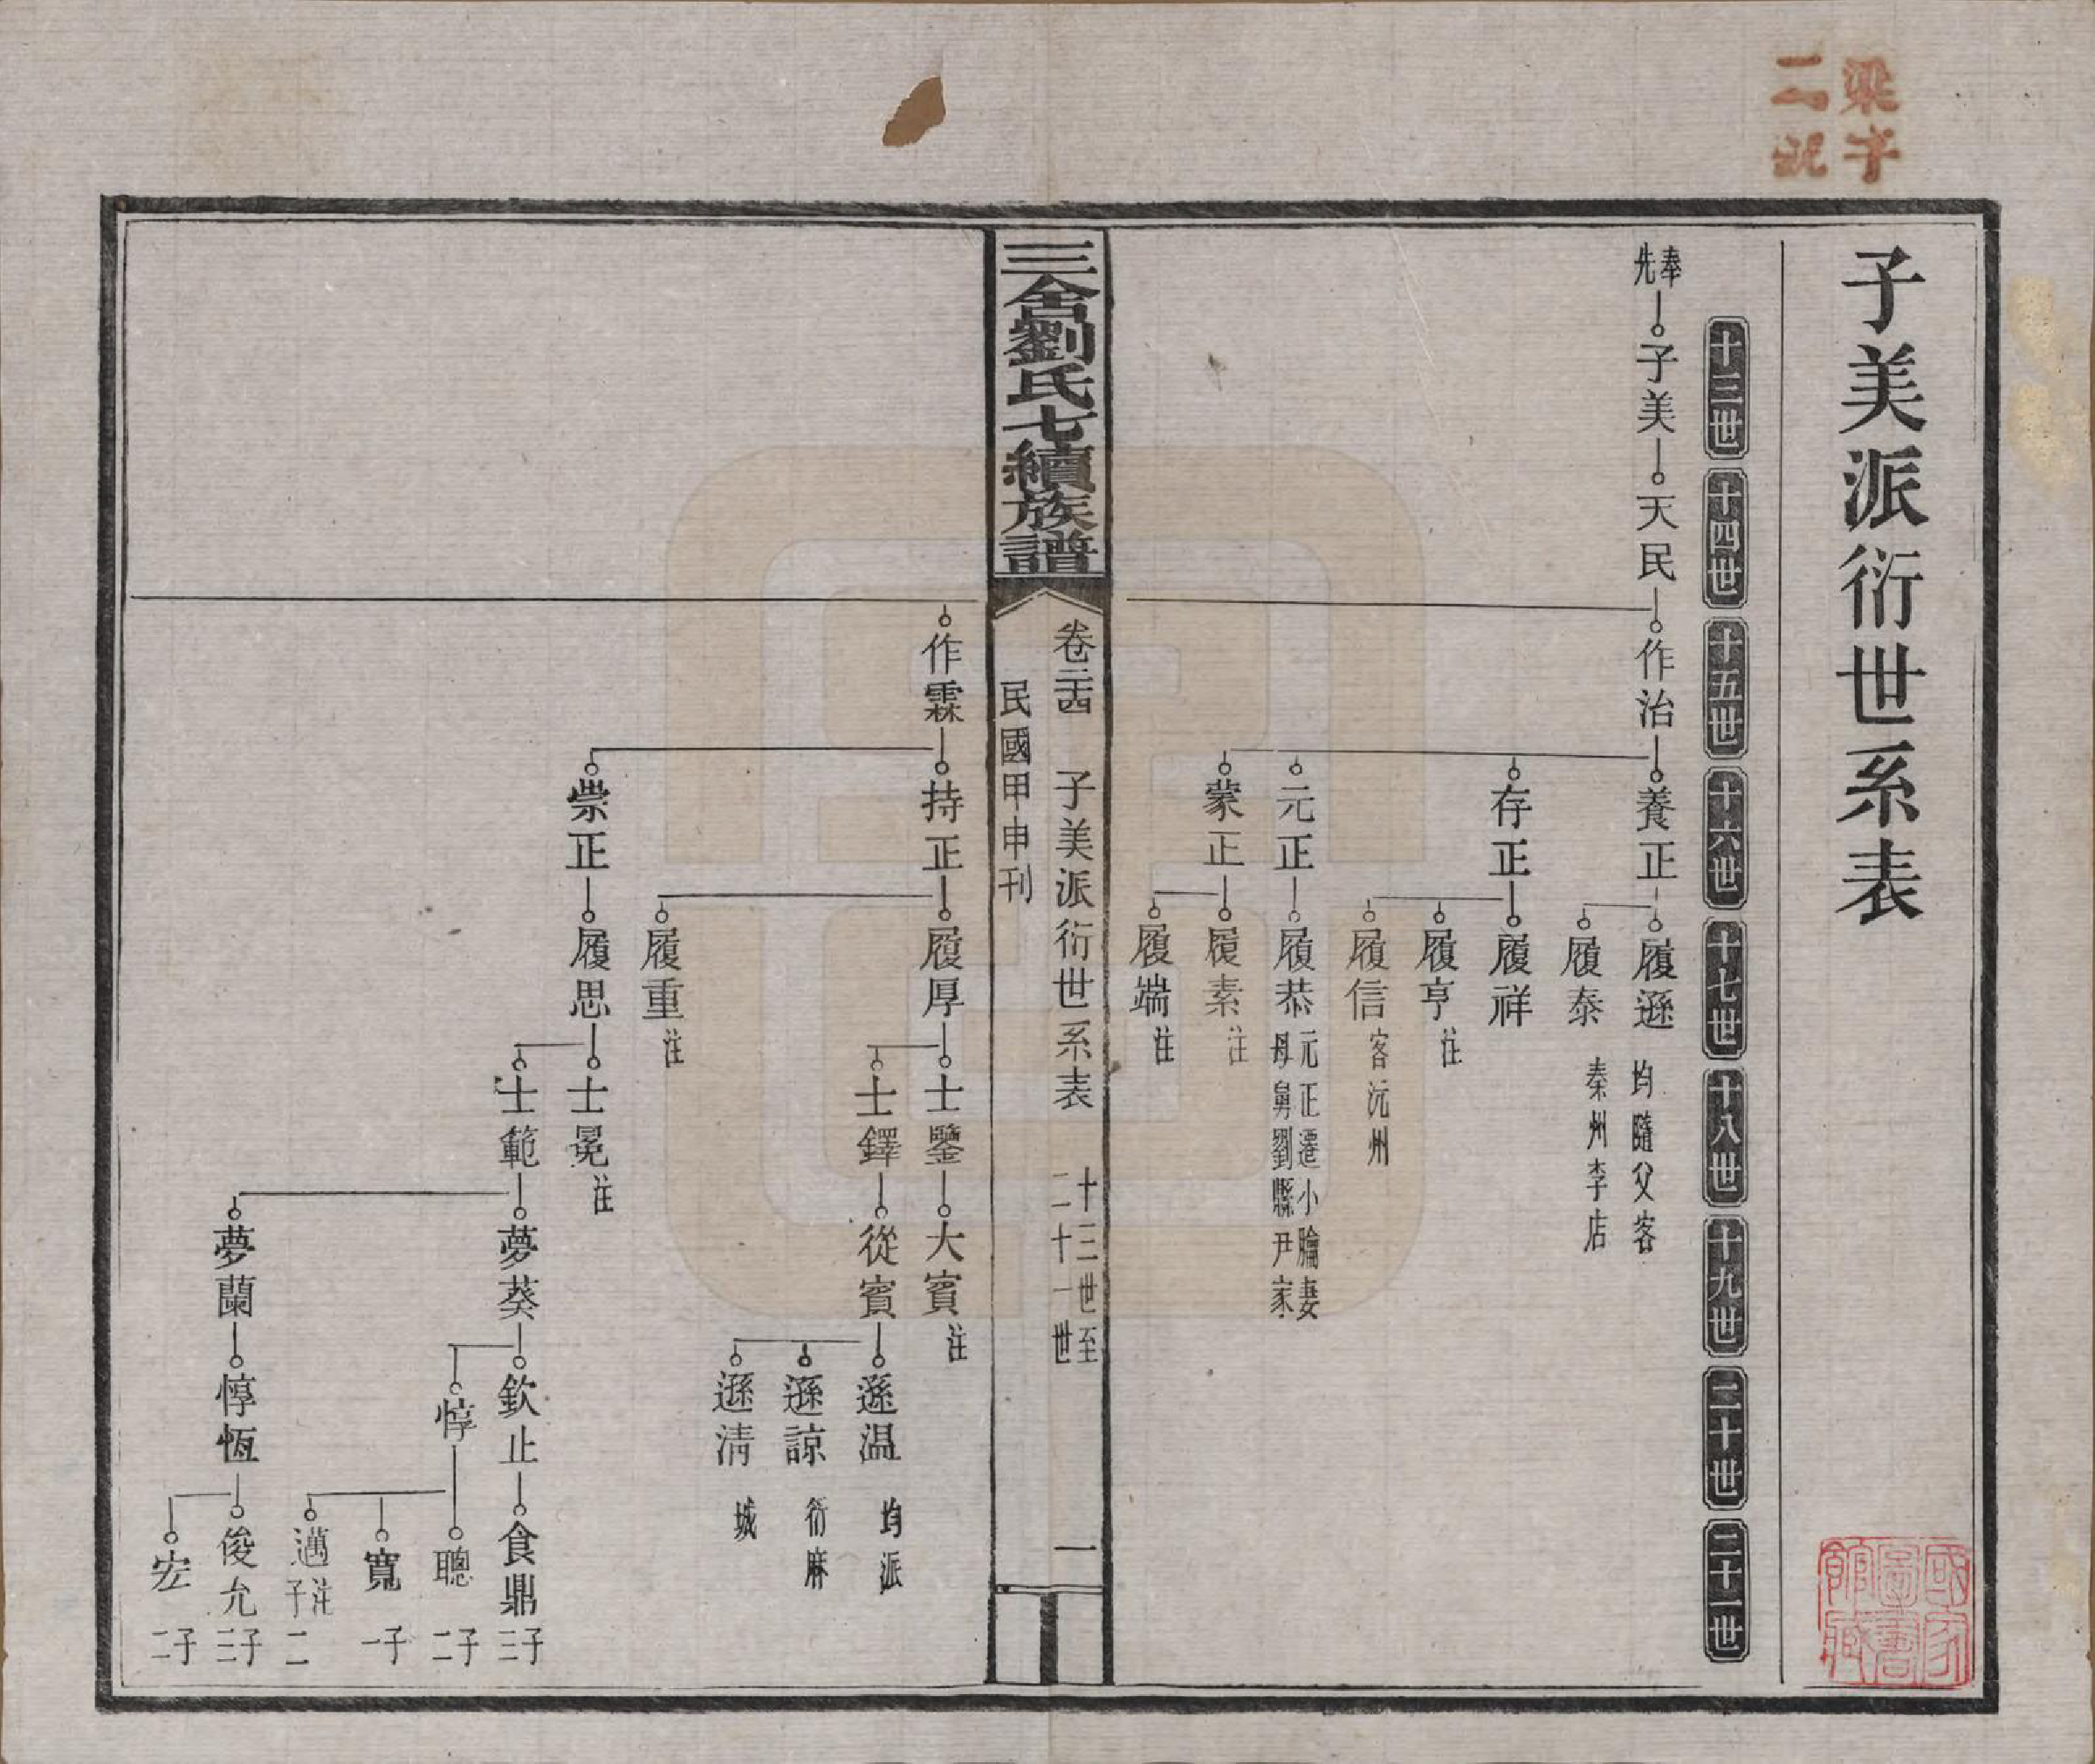 梁字
二號
子美派衍世系表
十三世
十四世
十五世
十六世
十七世
十八世
十九世
二十世
二十一世
奉先
子美
天民
作治
養正
履遜
均隨父客
履泰
秦州李店
存正
履祥
履亨
注
履信
客沅州
元正
履恭
元正遷小腀妻
母舅劉縣尹家
蒙正
履素
注
履端
注
三舍劉氏七續族譜
卷二十四
子美派衍世系表
十三世至
二十一世
一
民國甲申刊
作霖
持正
履厚
士鑒
大賓
注
士鐸
從賓
遜温
均派
遜諒
衍麻
遜清
城
履重
注
崇正
履思
士冕
注
士範
夢葵
欽止
食鼎
三子
惇
聰
二子
寬
一子
邁
注
子
二
夢蘭
惇恆
俊允
三子
宏
二子
國家圖書館藏